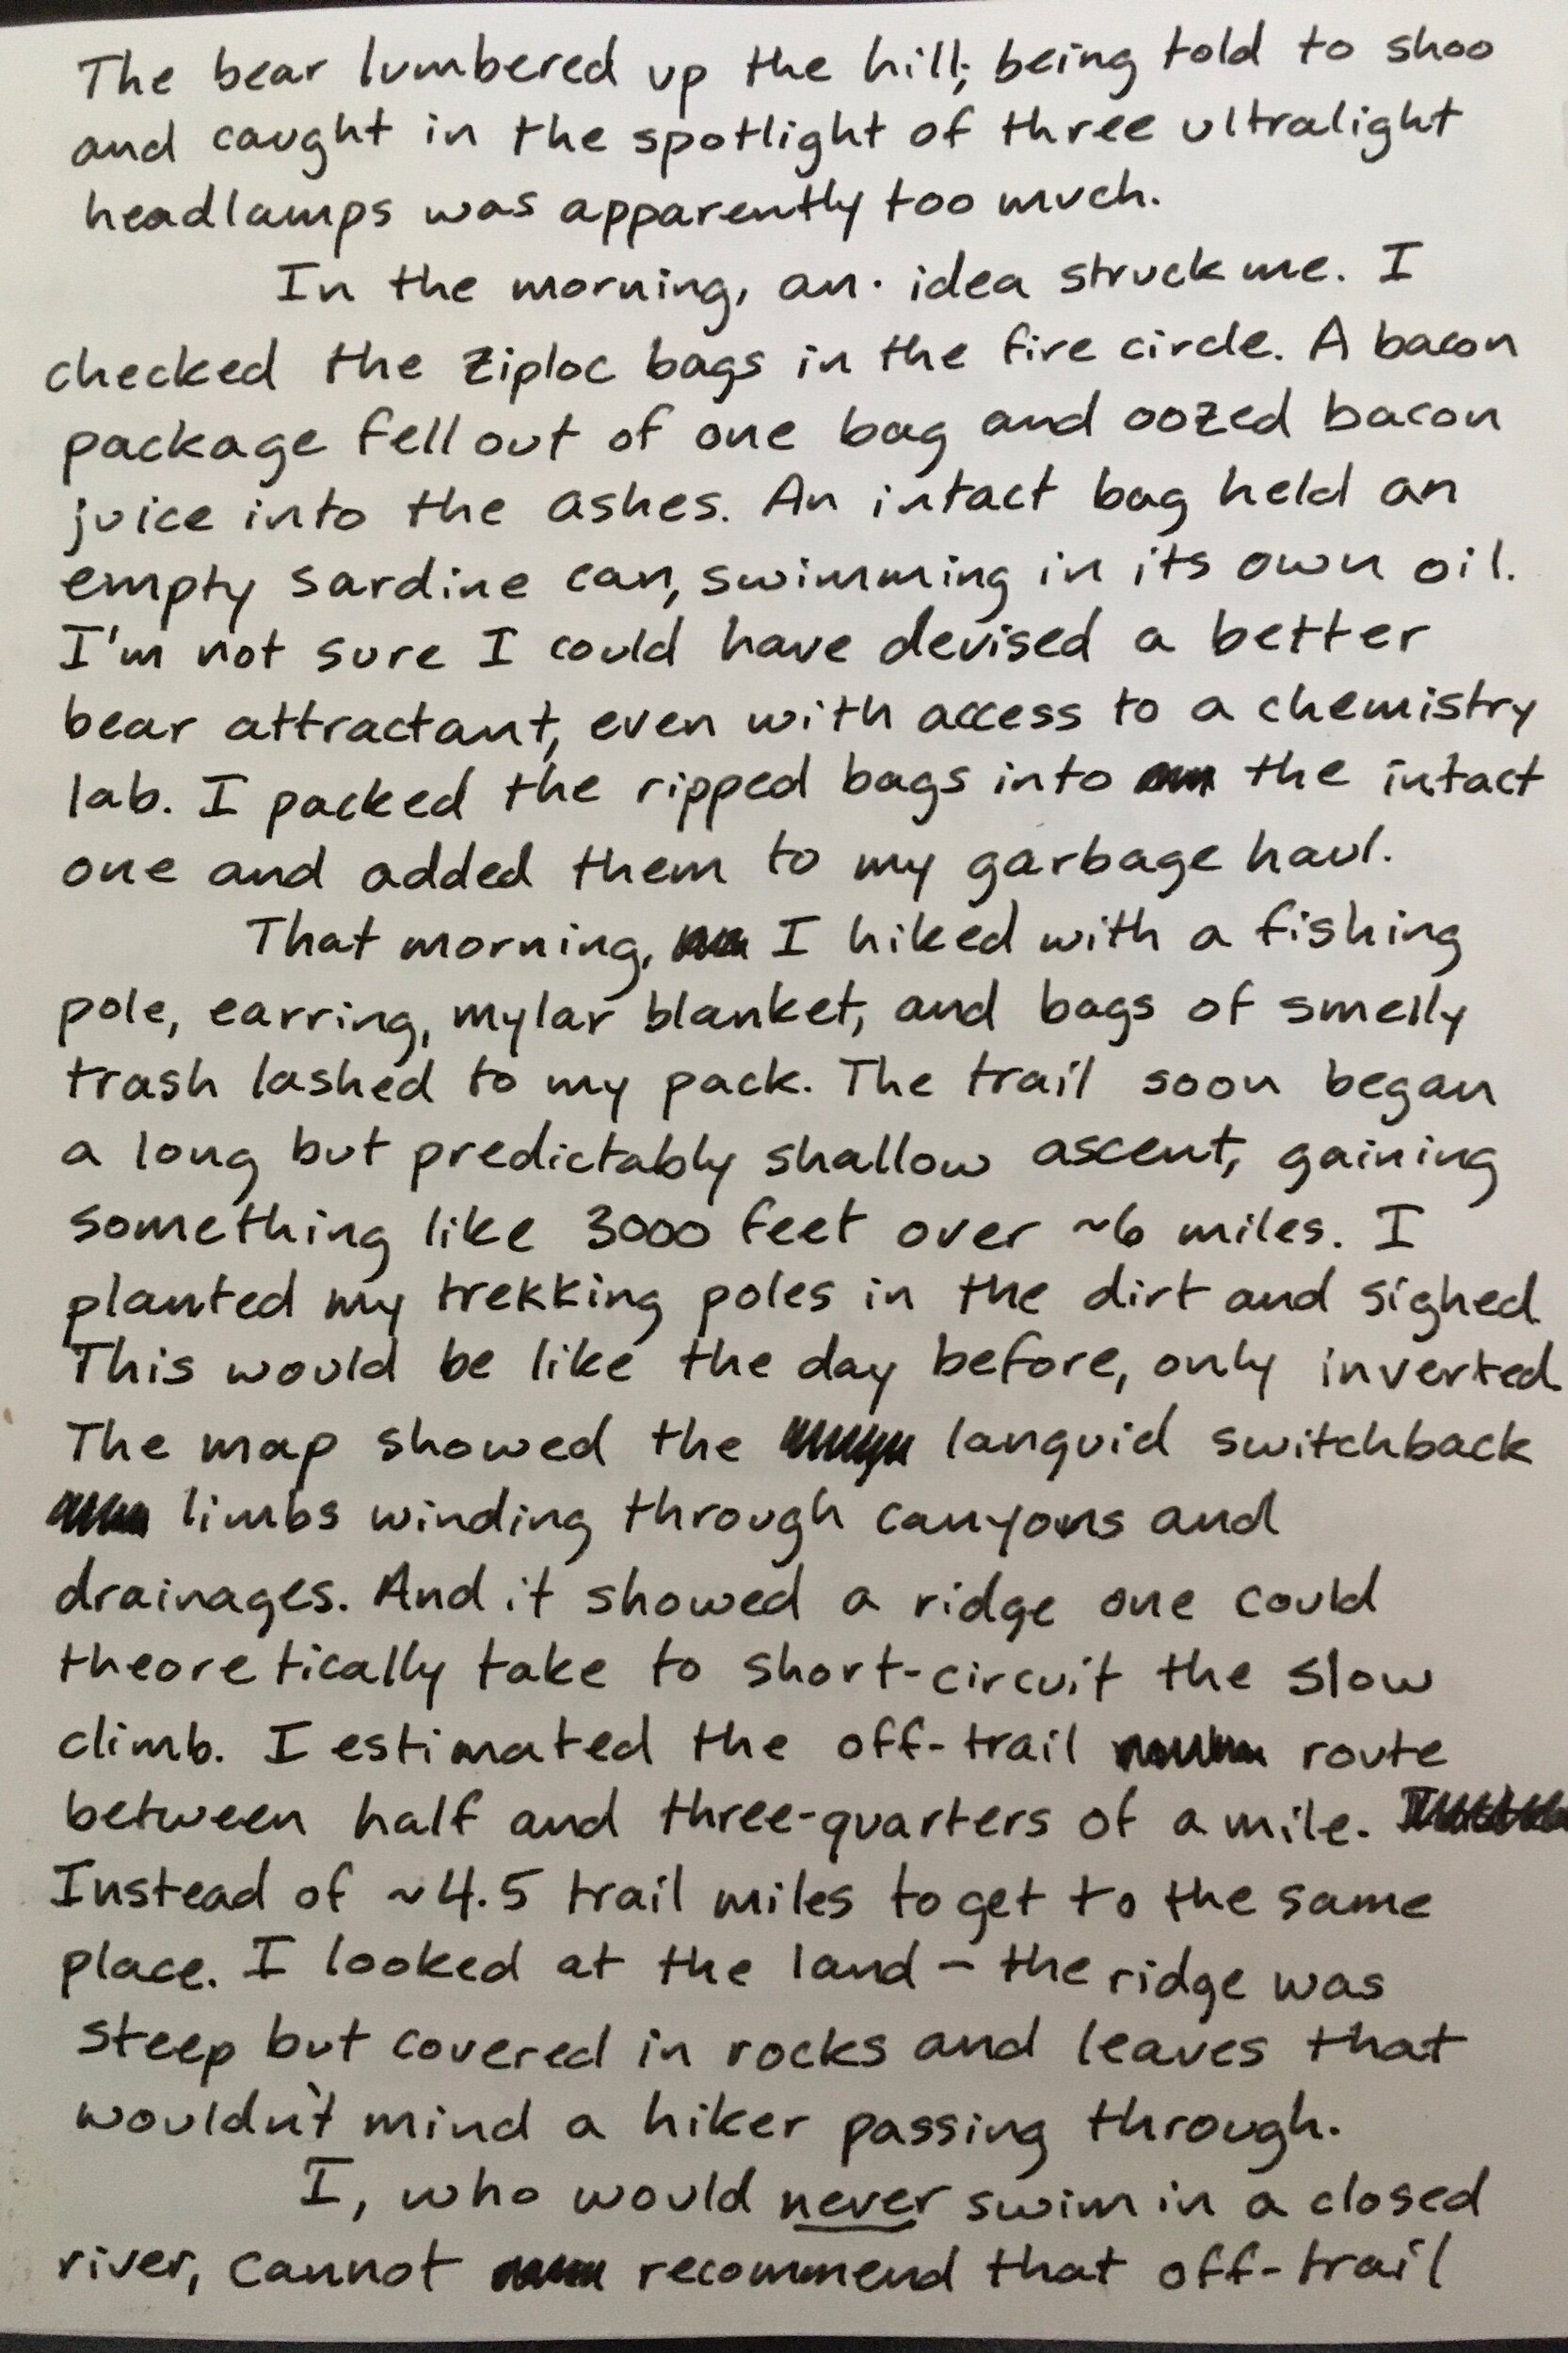 The bear lumbered up the hill; being told to shoo
and caught in the spotlight of three ultralight
headlamps was apparently too much.
In the morning, an idea struck me. I
checked the ziploc bags in the fire circle. A bacon
package fell out of one bag and oozed bacon
juice into the ashes. An intact bag held an
empty sardine can, swimming in its own oil.
I'm not sure I could have devised a better
bear attractant, even with access to a chemistry
lab. I packed the ripped bags into the intact
one and added them to my garbage haul.
That morning, I hiked with a fishing
pole, earring, mylar blanket, and bags of smelly
trash lashed to my pack. The trail soon began
a long but predictably shallow ascent, gaining
something like 3000 feet over ~6 miles. I
planted my trekking poles in the dirt and sighed.
This would be like the day before, only inverted.
The map showed the languid switchback
limbs winding through canyons and
drainages. And it showed a ridge one could
theoretically take to short-circuit the slow
climb. I estimated the off-trail route
between half and three-quarters of a mile.
Instead of ~4.5 trail miles to get to the same
place. I looked at the land - the ridge was
steep but covered in rocks and leaves that
wouldn't mind a hiker passing through.
I, who would never swim in a closed
river, cannot recommend that off-trail